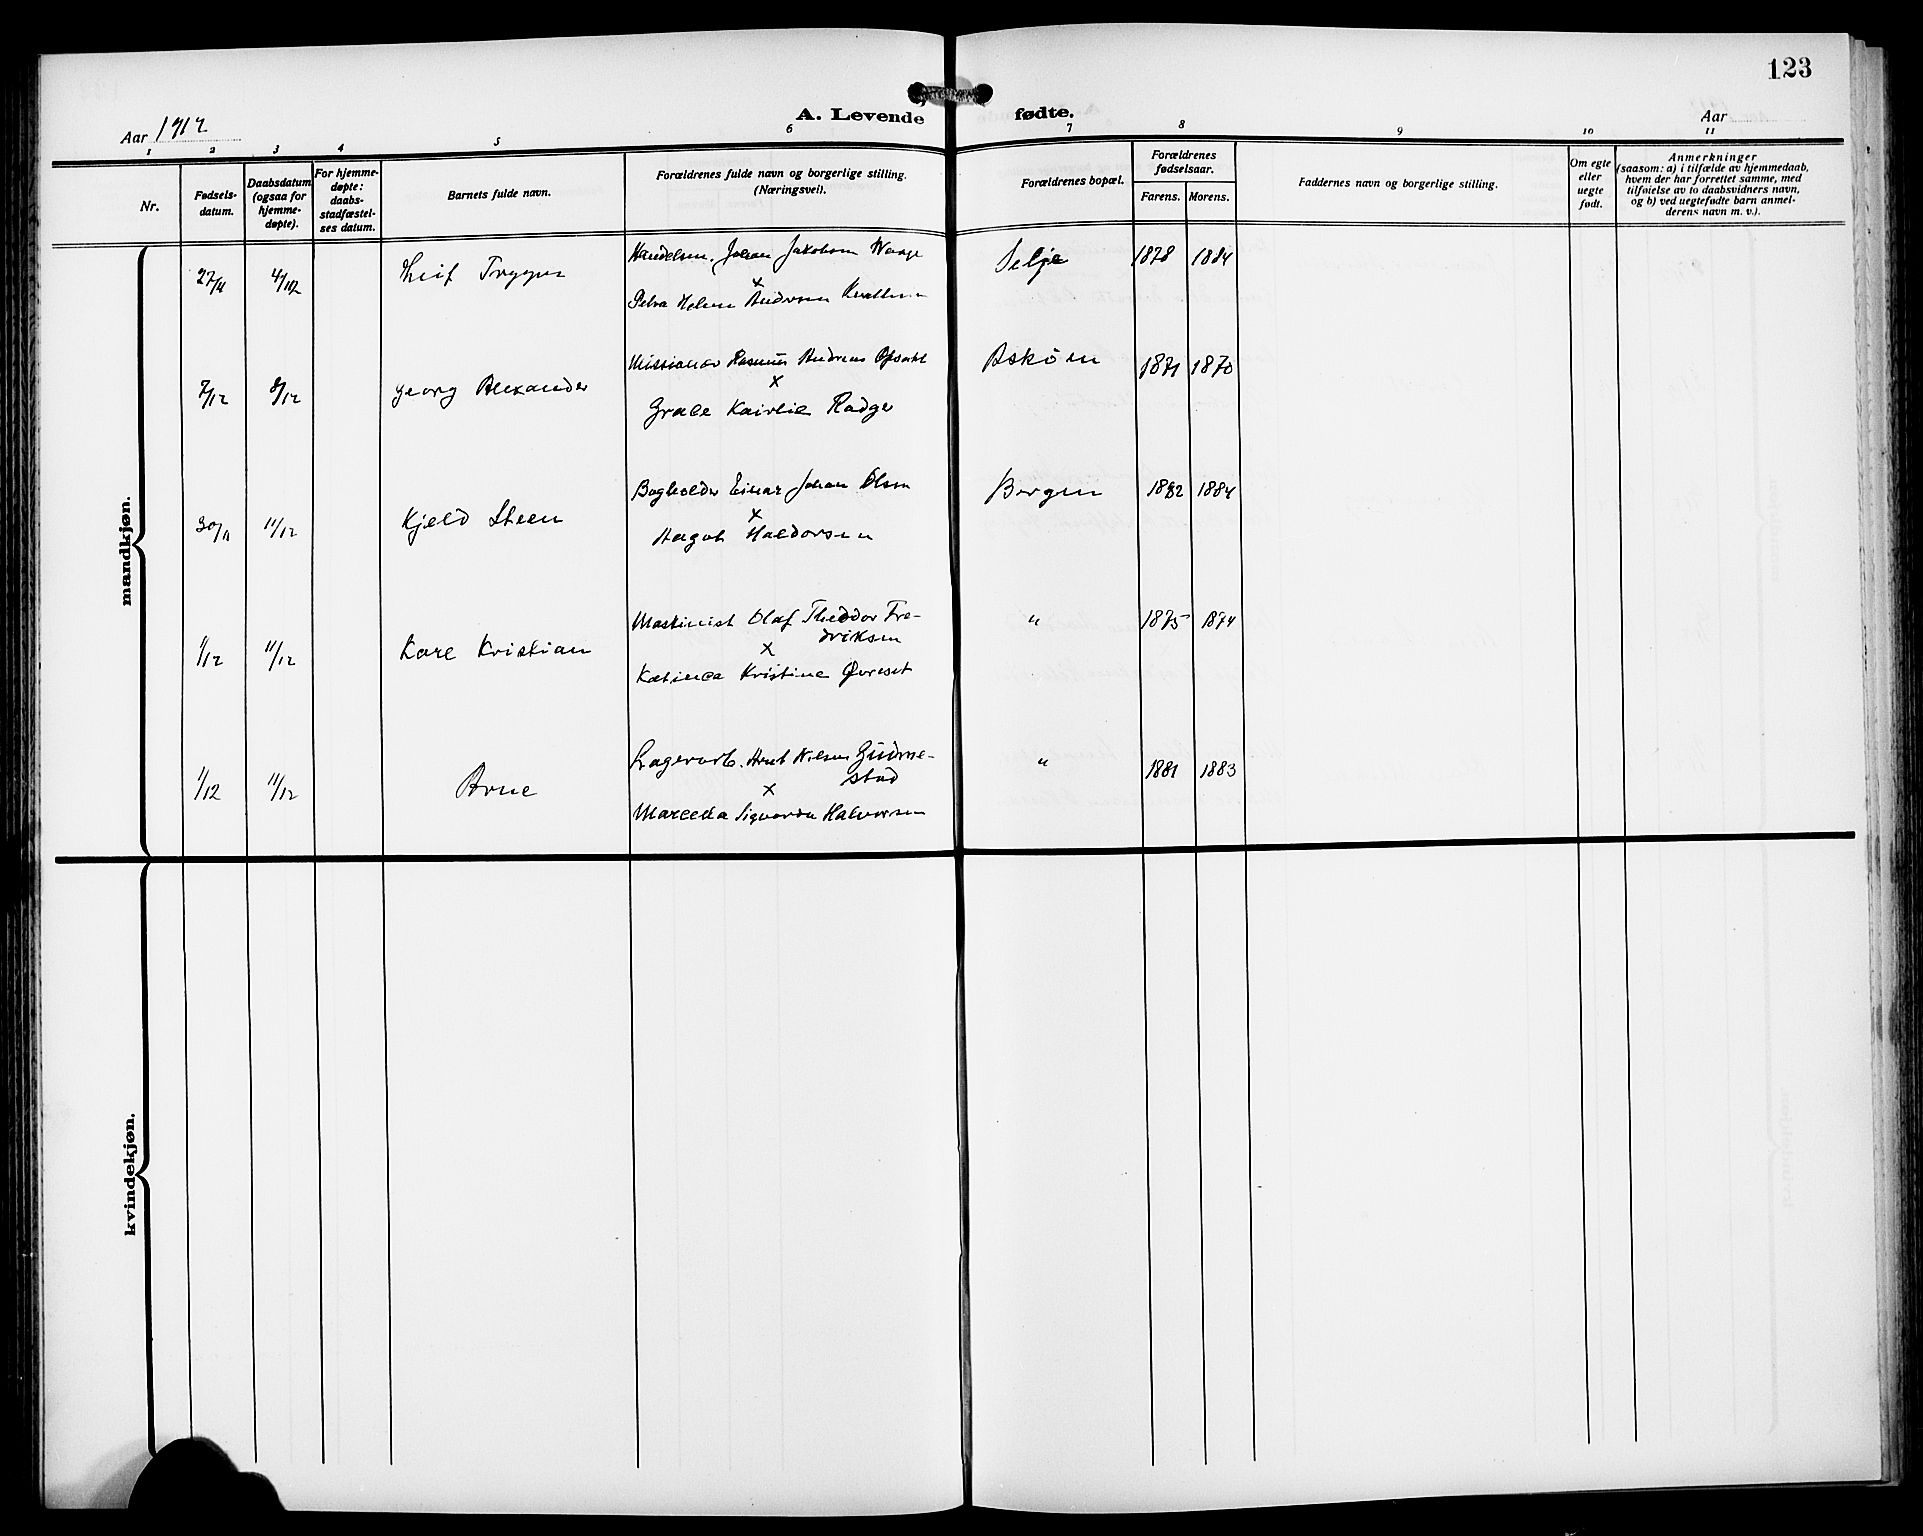 123
A. Levende fødte.
Aar 1912
Aar
1 2 3 4 5 6 7 8 9 10 11
Nr.
Fødsels-
datum.
Daabsdatum
(ogsaa for
hjemme-
døpte).
For hjemme-
døpte:
daabs-
stadfæstel-
ses datum.
Barnets fulde navn.
Forældrenes fulde navn og borgerlige stilling.
(Næringsvei).
Forældrenes bopæl.
Forældrenes
fødselsaar.
Farens. Morens.
Faddernes navn og borgerlige stilling.
Om egte
eller
uegte
født.
Anmerkninger
(saasom: a) i tilfælde av hjemmedaab,
hvem der har forrettet samme, med
tilføielse av to daabsvidners navn,
og b) ved uegtefødte barn anmel-
derens navn m. v.).
mandkjøn.
27/11 4/12 Leif Trygve
Handelsm. Johan Jakobsen Waage
x
Petra Helene Andersen
Selje 1878 1884
7/12 8/12 Georg Alexander
Missionær Rasmus Andreas Opsahl
x
Grace Radge
Askøen 1871 1870
30/11 11/12 Kjeld Steen
Bogholder Einar Johan Olsen
x
Aagot Haldorsen
Bergen 1882 1884
1/12 11/12 Kåre Kristian
Maskinist Olaf Theodor Fre-
driksen
x
Katinca Kristine Øvreset
" 1875 1874
1/12 11/12 Arne
Lagerarb. Arnt Nilsen Gudme-
stad
x
Marcella Sigvarda Halvorsen
" 1881 1883
kvindekjøn.